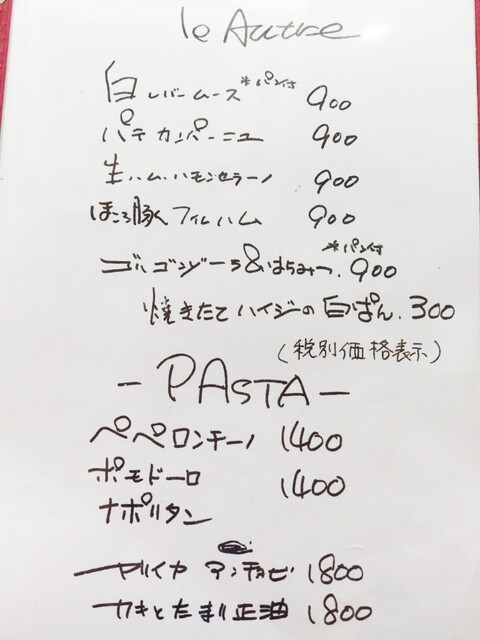 le Autre
白レバームース *パン付 900
パテ カンパーニュ 900
生ハム ハモンセラーノ 900
ほころ豚く フィレハム 900
ゴルゴンゾーラ&はちみつ. *パン付 900
焼きたて ハイジの白ぱん. 300
(税別価格表示)
- PASTA -
ペペロンチーノ 1400
ポモドーロ 1400
ナポリタン
ヤリイカ アンチョビ 1800
カキとたまり正油 1800